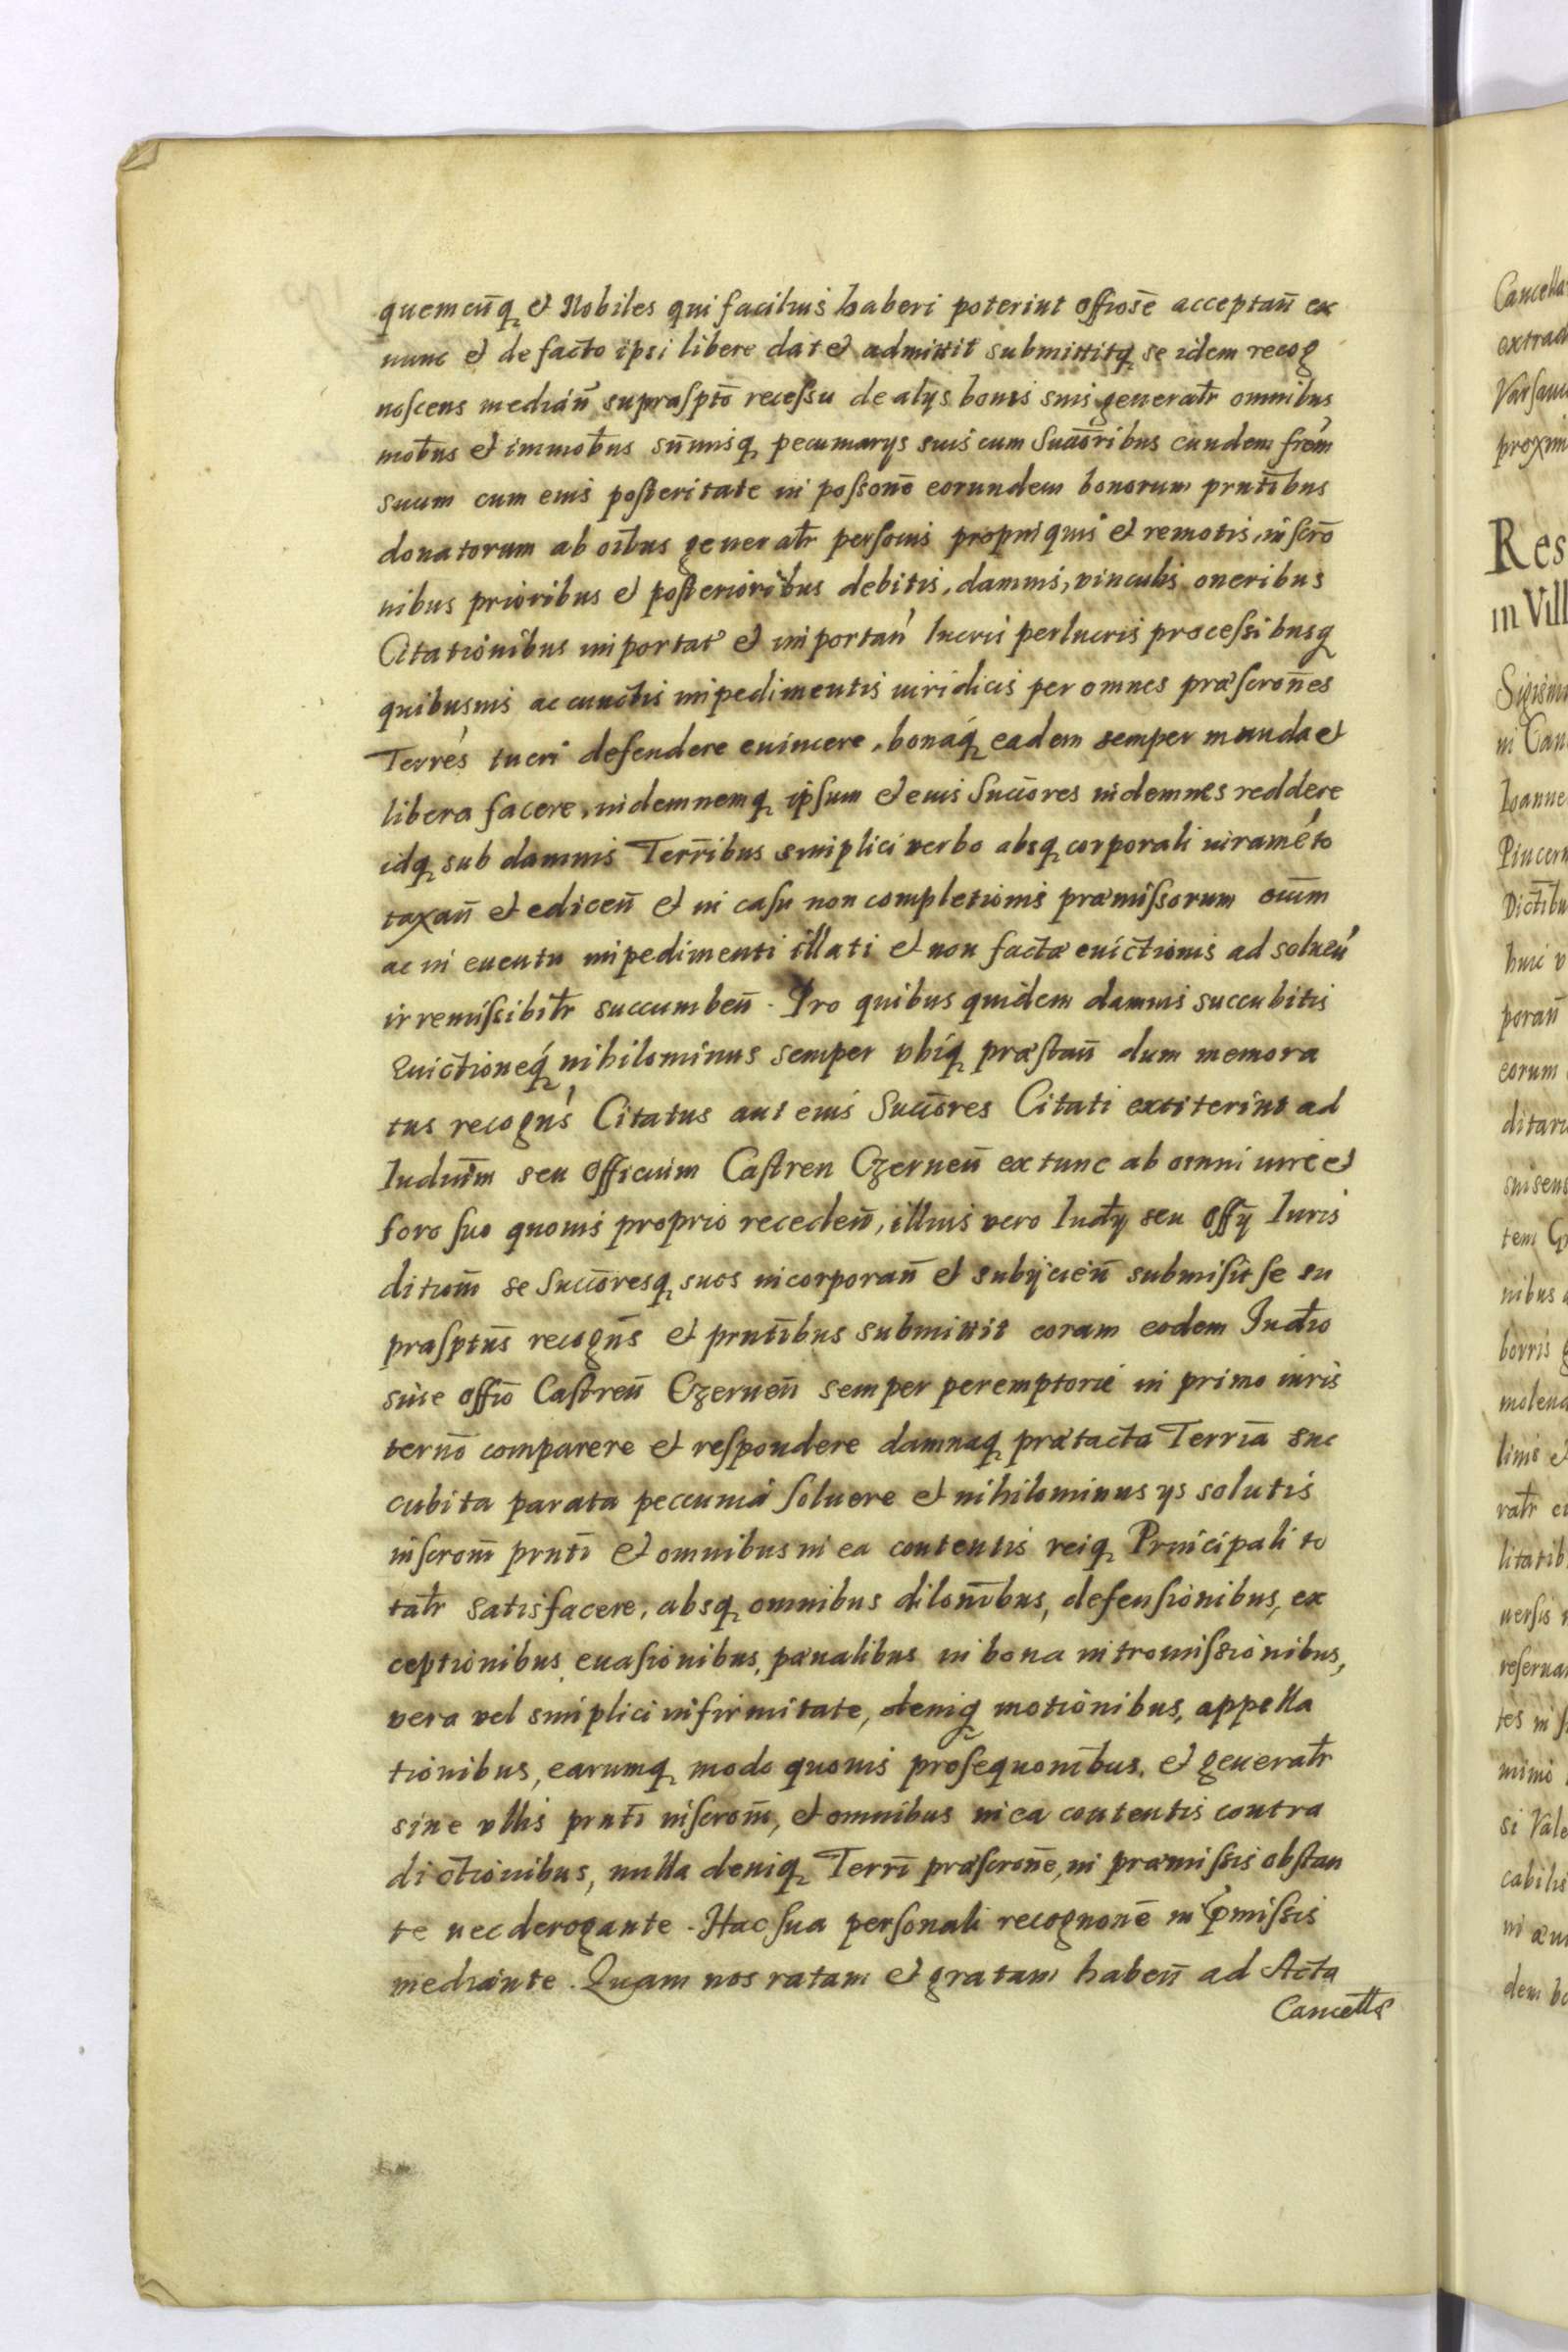 quemcūq et Nobiles qui facilius haberi poterint offiose acceptan̄ ex
nunc et de facto ipsi libere dat et admittit submittitq se idem recog
noscens median̄ supraspto recessu de alijs bonis suis generalr omnibus
mobus et immobus sum̄isq pecuniarijs suis cum Succoribus eundem frem
suum cum eius posteritate in possone eorundem bonorum pntibus
donatorum ab oibus generalr personis propinquis et remotis, inscro
nibus prioribus et posterioribus debitis, damnis, vinculis, oneribus
Citationibus importat et importan̄ lucris perlucris processibusq
quibusuis ac cunctis impedimentis iuridicis per omnes præscrones
Terres tueri defendere euincere, bonaq eadem semper munda et
libera facere, indemnemq ipsum et eius Succores indemnes reddere
idq sub damnis Terribus simplici verbo absq corporali iuraméto
taxan̄ et edicen̄ et in casu non completionis præmissorum oium
ac in euentu impedimenti illati et non factæ euictionis ad soluen̄
irremissibilr succumben̄. Pro quibus quidem damnis succubitis
Euictioneq nihilominus semper vbiq præstan̄ dum memora
tus recogns Citatus aut eius Succores Citati extiterint ad
Iudium seu Officium Castren Czernen̄ ex tunc ab omni iure et
foro suo quouis proprio receden̄, illius vero Iudij seu Offij Iuris
ditioni se Succoresq suos incorporan̄ et subijcien̄ submisit se su
prasptus recogns et pntibus submittit coram eodem Iudio
siue offio Castren̄ Czernen̄ semper peremptorie in primo iuris
termo comparere et respondere damnaq prætacta Terria suc
cubita parata peccunia soluere et nihilominus ijs solutis
inscroni pnti et omnibus in ea contentis reiq Principali to
talr satisfacere, absq omnibus dilonibus, defensionibus, ex
ceptionibus, euasionibus, pænalibus in bona intromissionibus,
vera vel simplici infirmitate, deniq motionibus, appella
tionibus, earumq modo quouis prosequonibus, et generalr
sine vllis pnti inscroni, et omnibus in ea contentis contra
dictionibus, nulla deniq Terri præscrone, in præmissis obstan
te nec derogante. Hac sua personali recognone in pmissis
mediante. Quam nos ratam et gratam haben̄ ad Acta
Cancellæ